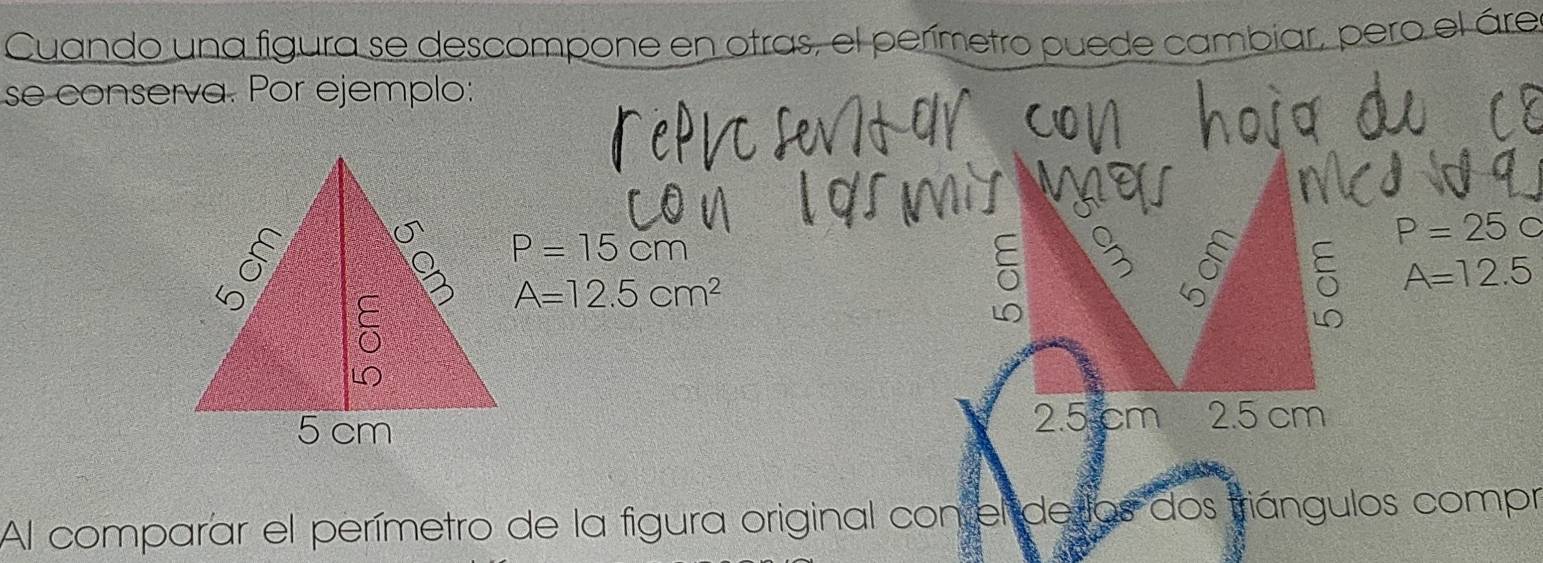 Cuando una figura se descompone en otras, el perímetro puede cambiar, pero el áre
se conserva. Por ejemplo:
representar con hoja de
con las mis mas medidas
5 cm
5 cm
5 cm
5 cm
P = 15 cm
A=12.5 cm²
5 cm
5 cm
5 cm
5 cm
2.5 cm
2.5 cm
P = 25 c
A=12.5
Al comparar el perímetro de la figura original con el de los dos triángulos compr